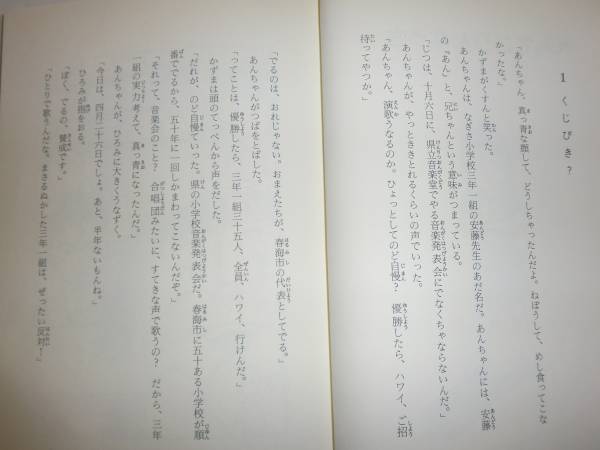 1 くじびき？
「あんちゃん、真っ青な顔して、どうしちゃったんだよ。ねぼうして、めし食ってこな
かったな。」
かずまがくすんと笑った。
あんちゃんは、なぎさ小学校三年一組の安藤先生のあだ名だ。あんちゃんには、安藤
の『あん』と、兄ちゃんという意味がつまっている。
「じつは、十月六日に、県立音楽堂でやる音楽発表会にでなくちゃならないんだ。」
あんちゃんが、やっとききとれるくらいの声でいった。
「あんちゃん、演歌うなるのか。ひょっとしてのど自慢？ 優勝したら、ハワイ、ご招
待ってやつか。」
「でるのは、おれじゃない。おまえたちが、春海市の代表としてでる。」
あんちゃんがつばをとばした。
「ってことは、優勝したら、三年一組三十五人、全員、ハワイ、行けんだ。」
かずまは頭のてっぺんから声をだした。
「だれが、のど自慢ていった。県の小学校音楽発表会だ。春海市に五十ある小学校が順
番ででるから、五十年に一回しかまわってこないんだぞ。」
「それって、音楽会のこと？ 合唱団みたいに、すてきな声で歌うの？ だから、三年
一組の実力考えて、真っ青になったんだ。」
あんちゃんが、ひろみに大きくうなずく。
「今日は、四月二十六日でしょ。あと、半年ないもんね。」
ひろみが指をおる。
「ぼく、でるの、賛成です。」
「ひとりで歌うんだな、まさるぬかした三年一組は、ぜったい反対！」